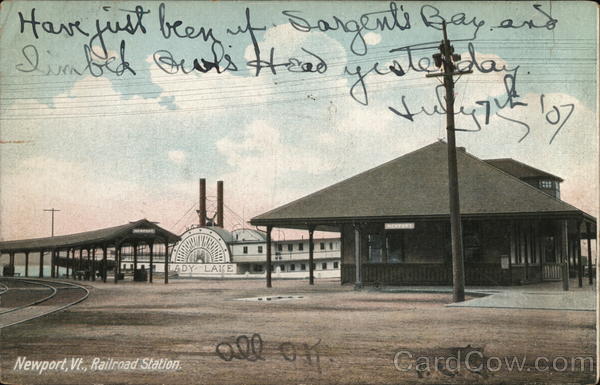 Have just been up Sargent's Bay and
climbed Owl's Head yesterday.
July 7th '07
NEWPORT
NEWPORT
LADY LAKE
all OK.
Newport, Vt., Railroad Station.
CardCow.com